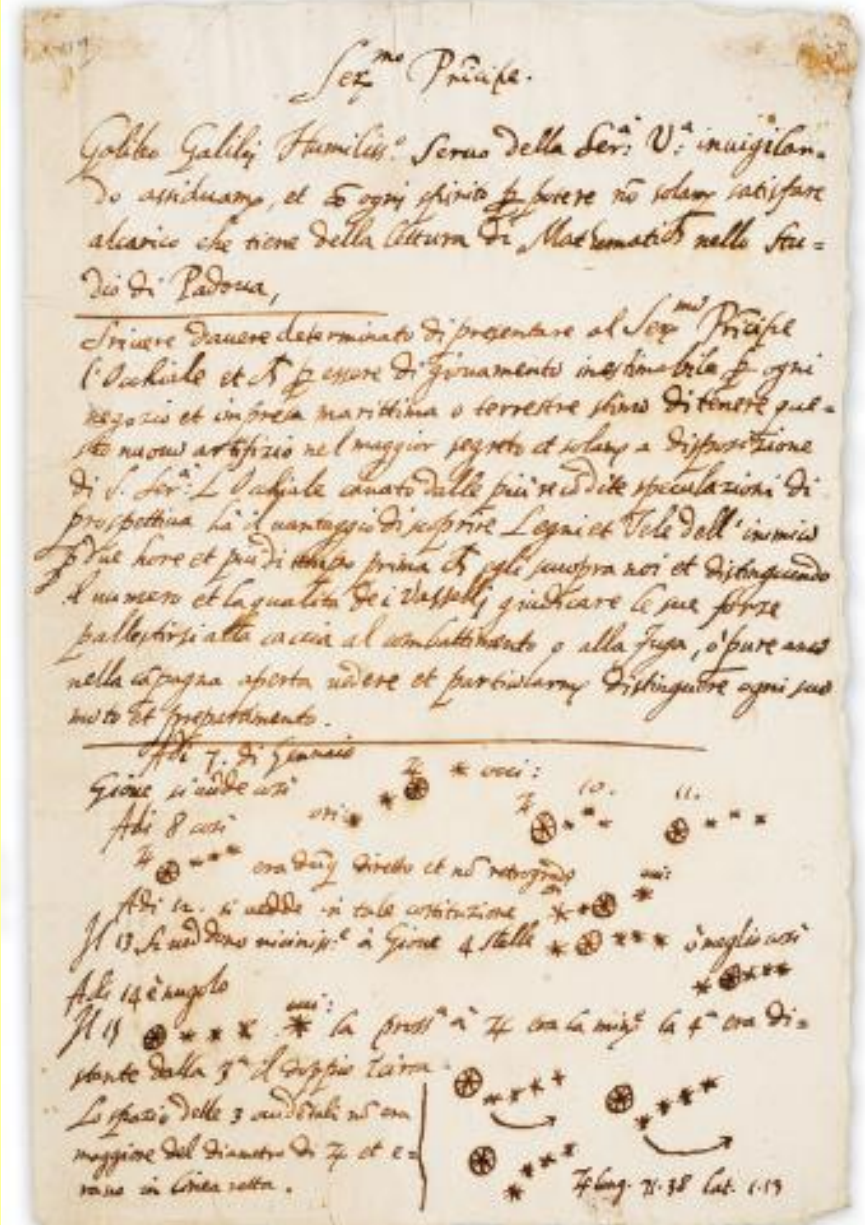 Ser.mo Prĩcipe.
Galileo Galilej Humiliss.o Seruo della Ser.a V.a inuigilan=
do assiduamẽ, et cõ ogni spirito ꝑ potere nõ solamẽ satisfare
alcarico che tiene della lettura di Mathematich nello Stu=
dio di Padoua,
Scriuere dauere determinato di presentare al Ser.mo Prĩcipe
l'Occhiale et ch ꝑ essere di giouamento inestimabile ꝑ ogni
negozio et impresa marittima o terrestre stimo di tenere que=
sto nuouo artifizio nel maggior segreto et solamẽ a disposizione
di S. Ser.a L'Occhiale cauato dalle più recõdite speculazioni di
prospettiua hà il uantaggio di scoprire Legni et Vele dell'inimico
ꝑ due hore et più di tempo prima ch egli scuopra noi et distinguendo
il numero et la qualità de i Vasselli giudicare le sue forze
pallestirsi alla caccia al combattimento o alla fuga, ò pure anco
nella cãpagna aperta uedere et particularmẽ distinguere ogni suo
moto et preparamento.
Adi 7. di Gennaio
Gioue si uedde così ♃ occi:
Adi 8 così ori: ♃ 10. 11.
♃ era dũq diretto et nõ retrogrado
Adi 12. si uedde in tale costituzione ori occi:
Il 13 si ueddono uiciniss.e à Gioue 4 stelle ò meglio così
Adi 14 è nugolo
Il 15 occi: la pross.a à ♃ era la min.e la 4.a era di=
stante dalla 3.a il doppio
Lo spazio delle 3 occidẽtali nõ era
maggiore del diametro di ♃ et e=
rano in linea retta.
♃ long. 71.38 lat. 1.13